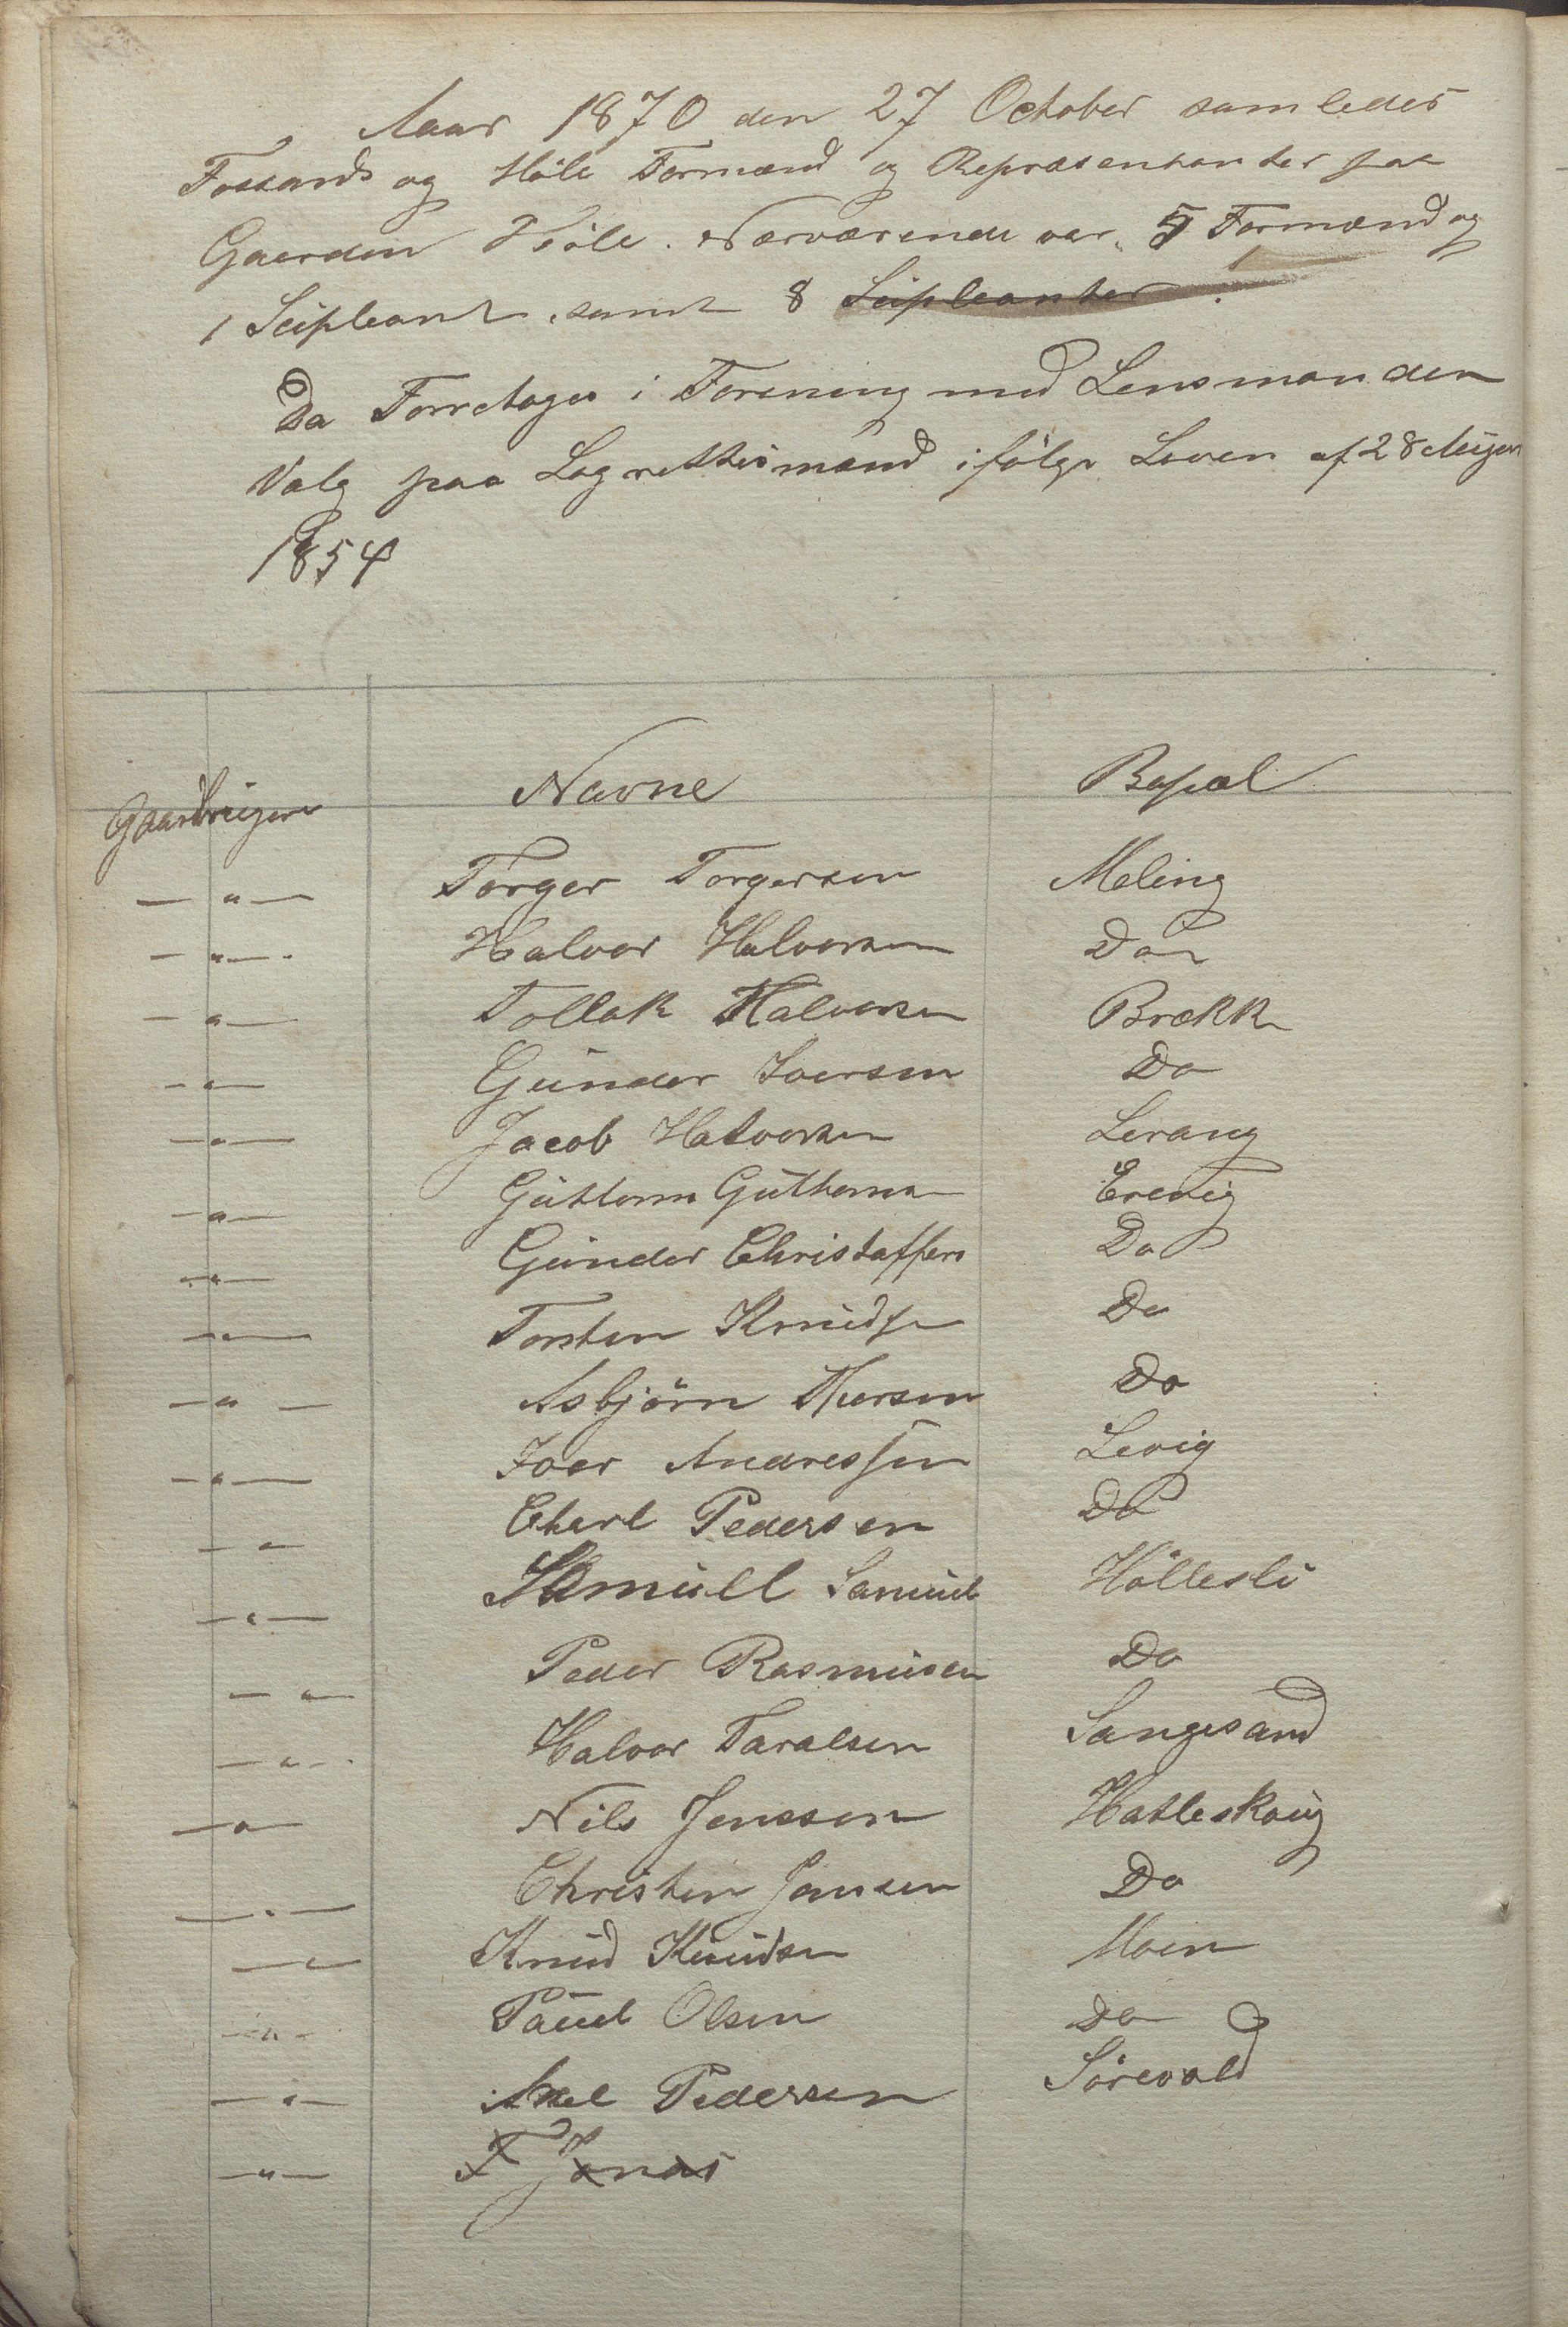 Aar 1870 den 27 October samledes
Fossands og Höle Formænd og Repræsentanter paa
Gaarden Höle. Nærværende var 5 Formænd og
1 Supleant. samt 8 Supleanter.
Da Forretoges i Forening med Lensmanden
Valg paa Lagrettesmænd ifölge Loven af 28
1854
Gaardbruger Navne Bopæl
— " — Torger Torgersen Meling
— " — Halvor Halvorsen Do
— " — Tollak Halvorsen Brækk
— " — Gunder Iversen Do
— " — Jacob Halvorsen Lerang
— " — Guttorm Guttorms Erevig
— " — Gunder Christoffers Do
— " — Torsten Knudsen Do
— " — Asbjörn Do
— " — Iver Andressen Levig
— " — Pedersen Do
— " — Samuell Samuel Höllesli
— " — Peder Rasmusen Do
— " — Halvor Taralsen Sangesand
— " — Nils Jenssen Hatleskoug
— " — Christen Jansen Do
— " — Knud Knudsen Moen
— " — Paul Olsen Do
— " — Axel Pedersen Sörevold
— " — T Jonas